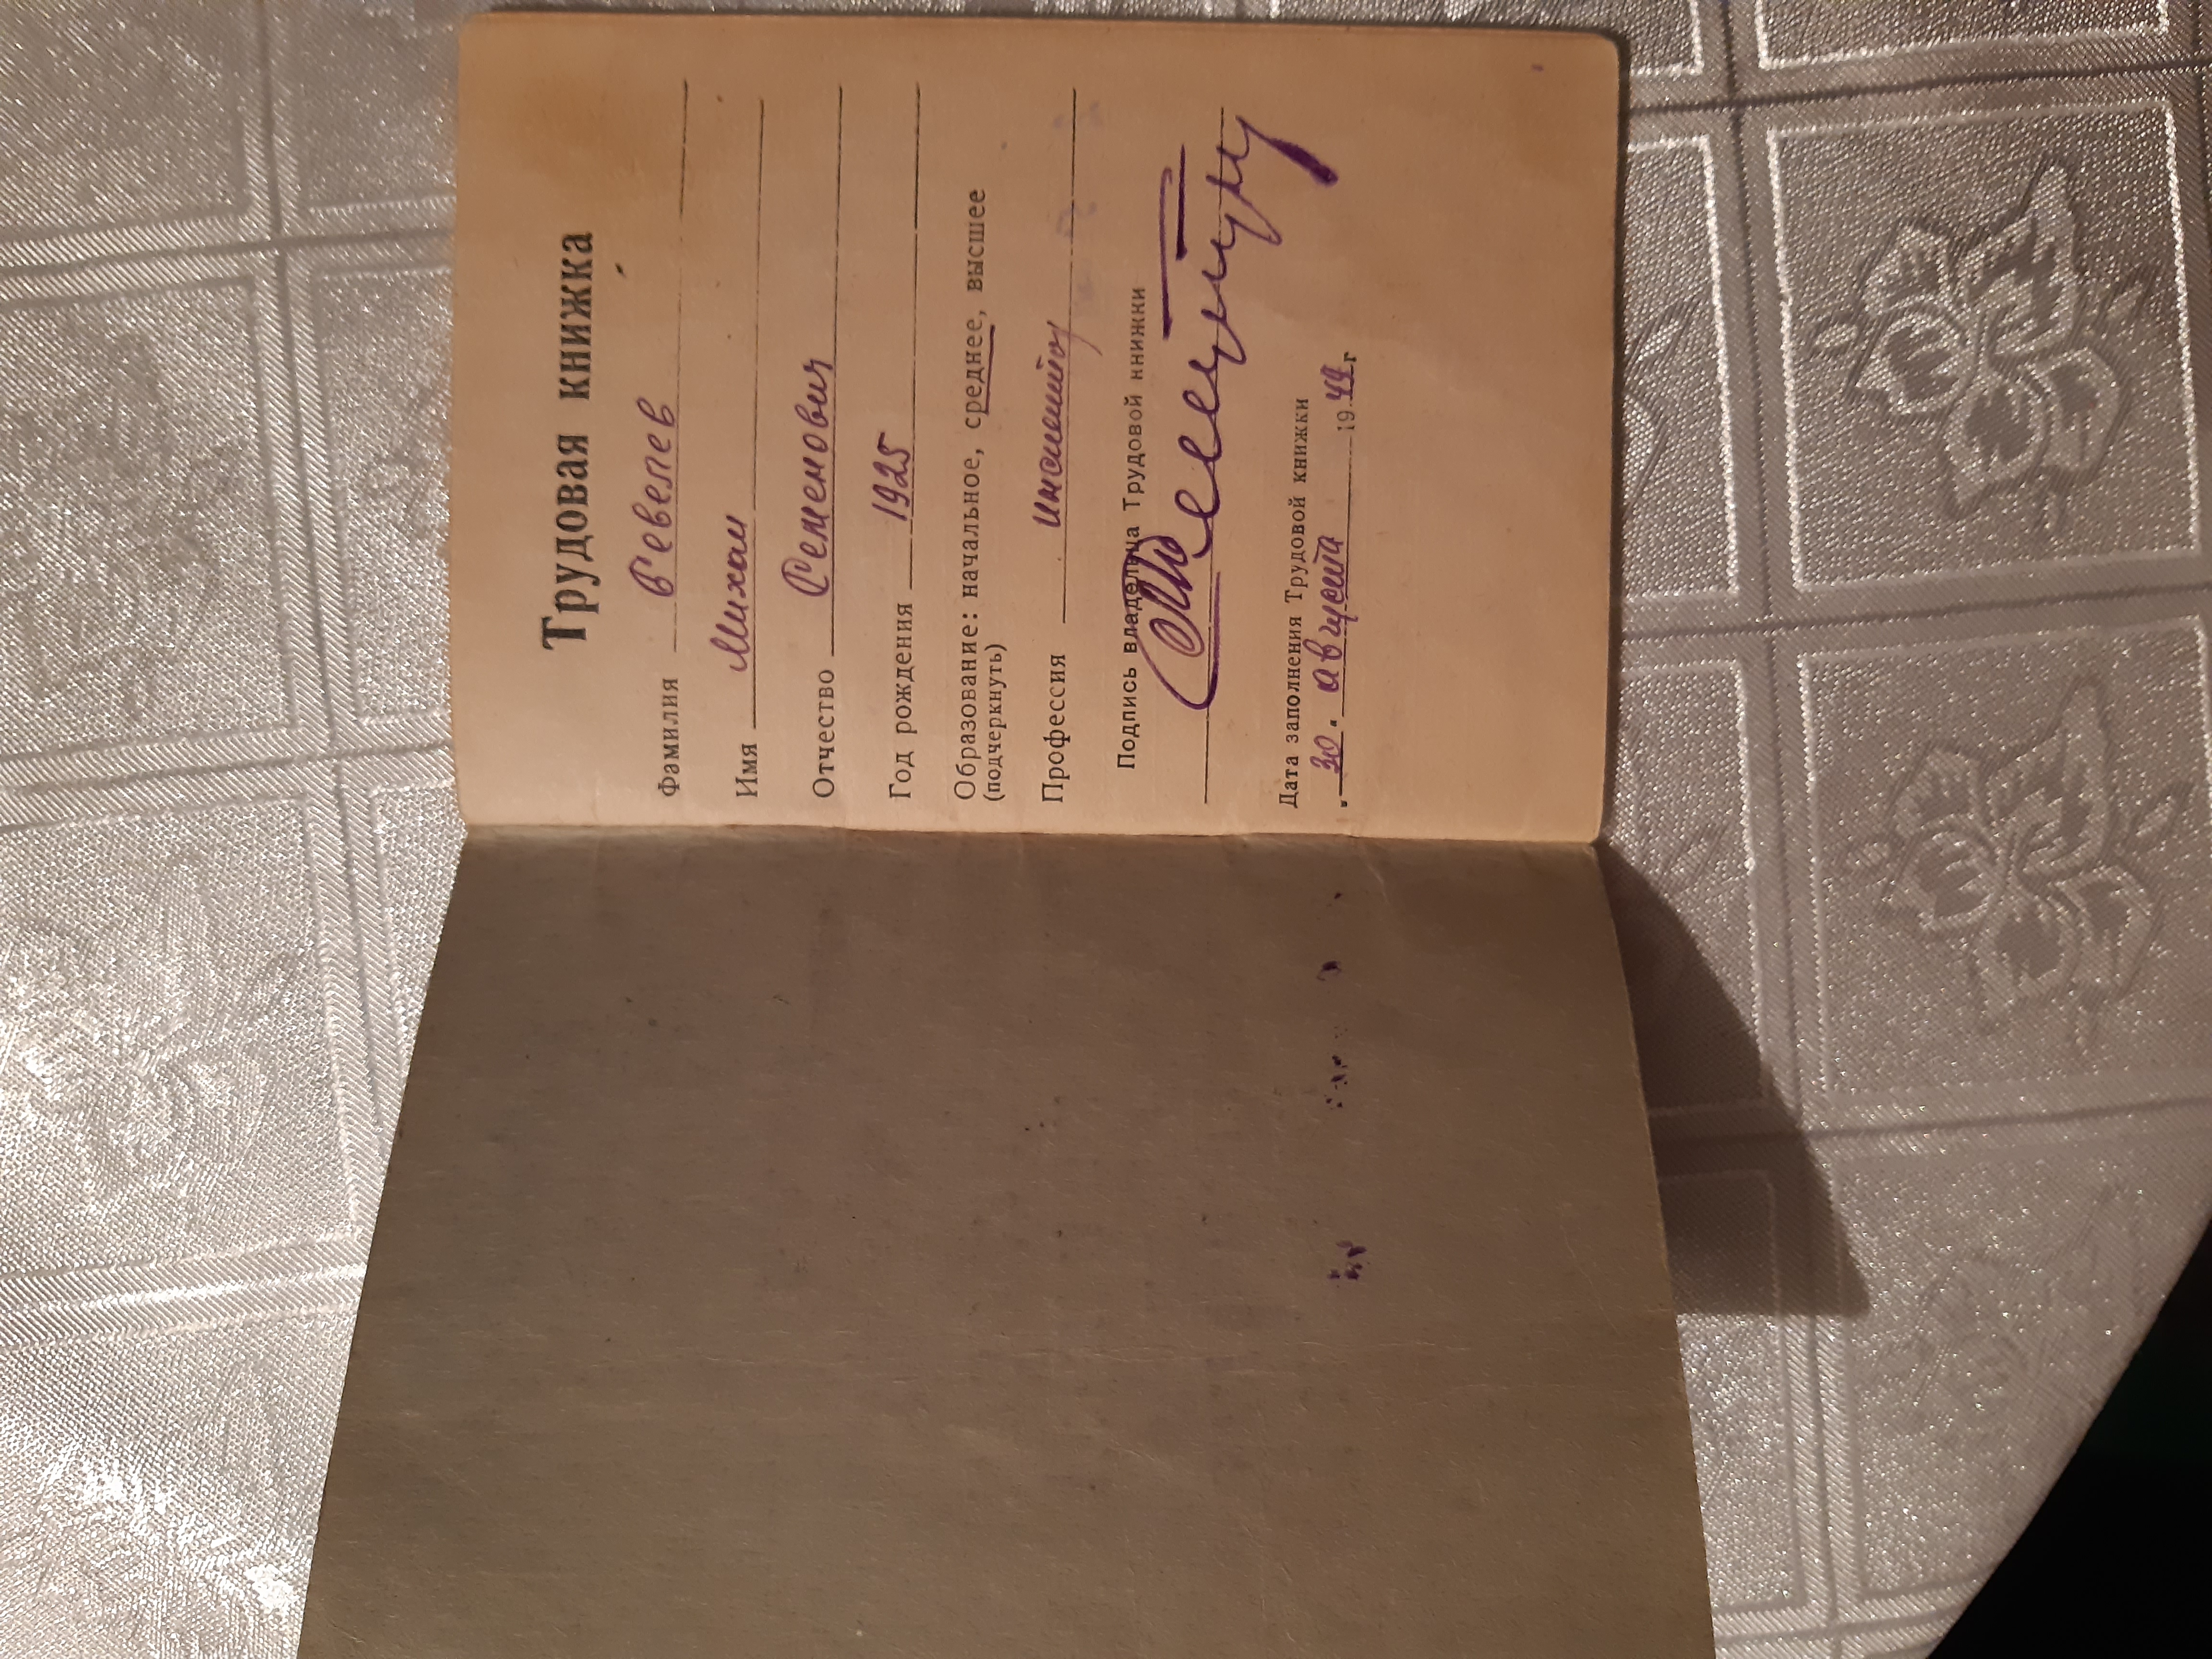 Трудовая книжка
Фамилия
Имя Михаил
Отчество Семенович
Год рождения 1925
Образование: начальное, среднее, высшее
(подчеркнуть)
Профессия
Подпись владельца Трудовой книжки
Дата заполнения Трудовой книжки
„30" августа 1944 г